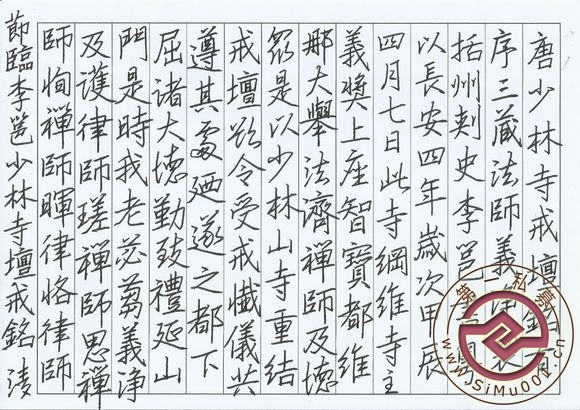 唐少林寺戒壇
序三藏法師義淨
括州刺史李邕
以長安四年歲次甲辰
四月七日此寺綱維寺主
義奬上座智寶都維
那大舉法濟禪師及德
眾是以少林山寺重結
戒壇欲令受戒懺儀共
遵其處迺遂之都下
屈諸大德勤致禮延山
門是時我老苾芻義净
及護律師瑳禪師思禪
師恂禪師暉律恪律師
節臨李邕少林寺壇戒銘
私募